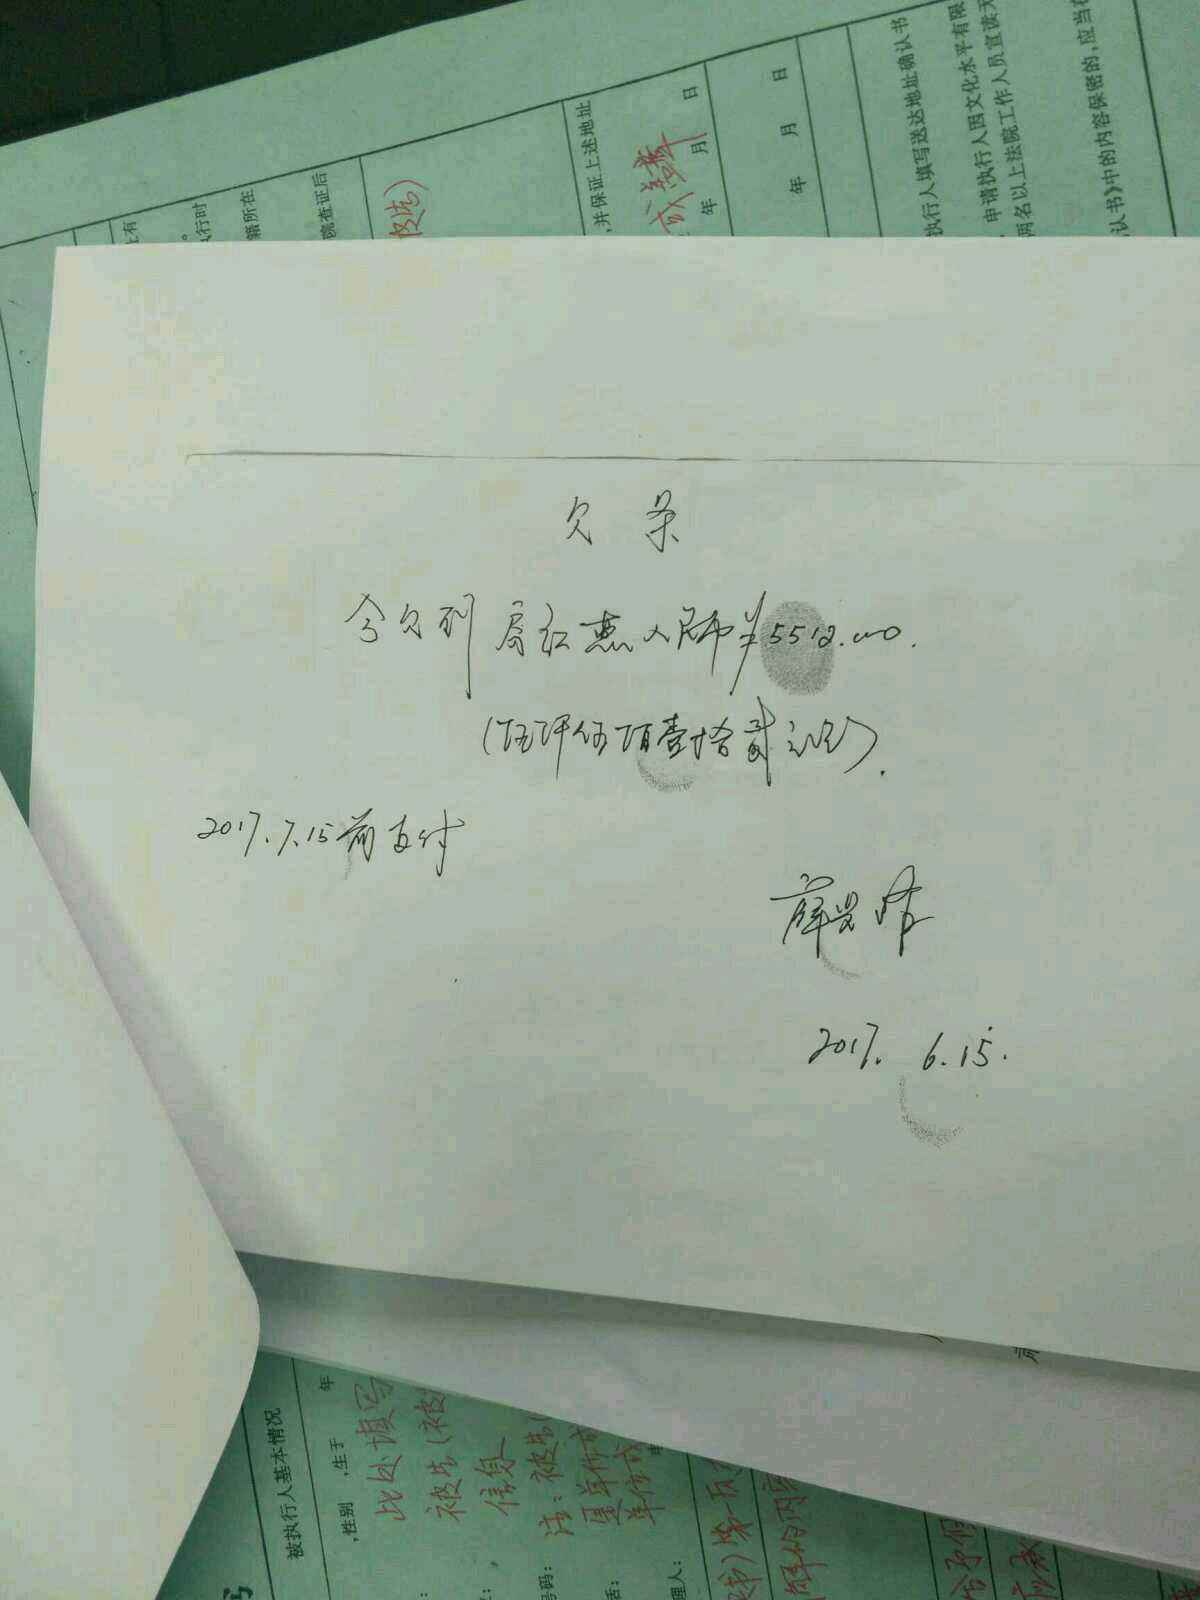 欠条
今欠到房红惠人民币¥5512.00.
(伍仟伍佰壹拾贰元整).
2017.7.15前支付
2017. 6.15.
有
。
执行时
籍所在
院查证后
,并保证上述地址
年 月 日
年 月 日
执行人填写送达地址确认书
申请执行人因文化水平有限
两名以上法院工作人员宣读无
认书》中的内容保密的,应当在
被执行人基本情况
,性别 ,生于 年
此处填写
被告(被
信息
注:被告
号码:
话:
理人: